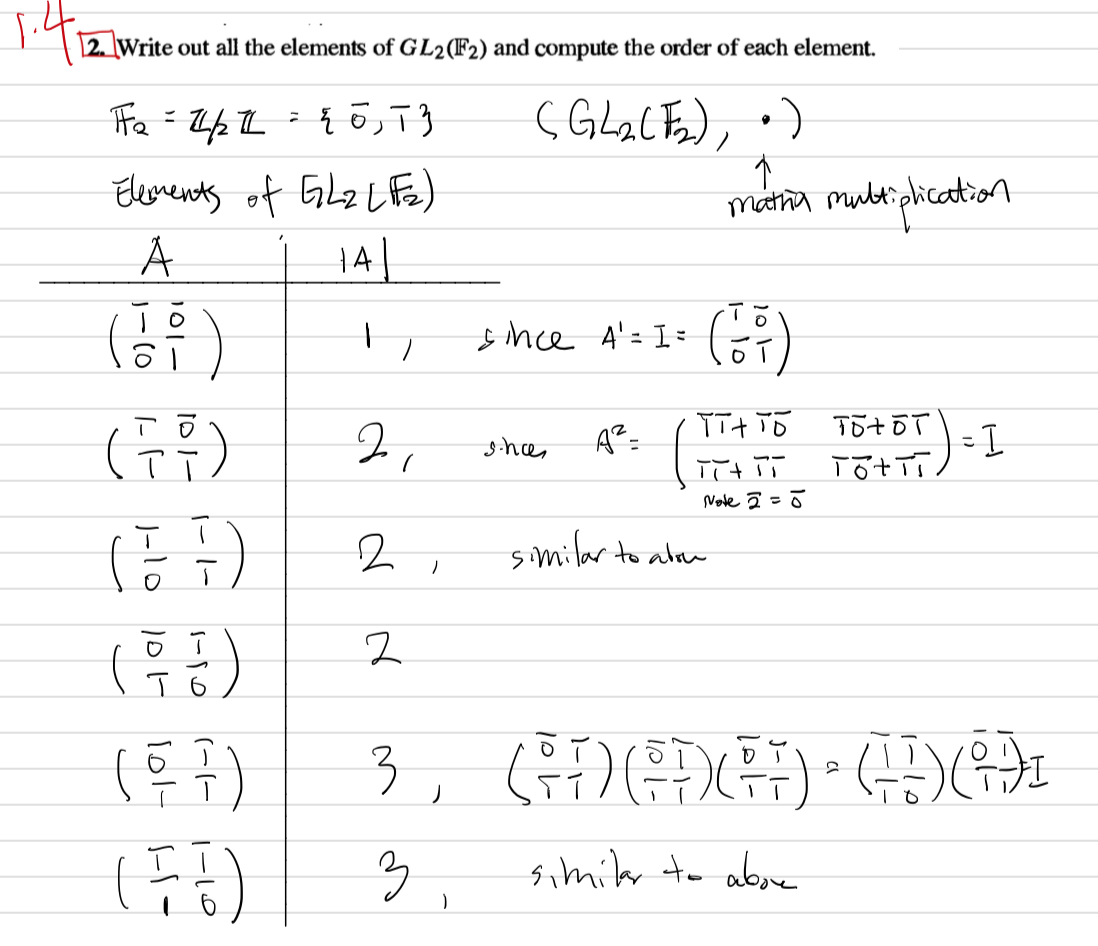 1.4
2. Write out all the elements of GL₂(𝔽₂) and compute the order of each element.
𝔽₂ = ℤ/2ℤ = { 0̅, 1̅ } (GL₂(𝔽₂), •)
↑
Elements of GL₂(𝔽₂) matrix multiplication
A |A|
(1̅ 0̅; 0̅ 1̅) 1, since A¹ = I = (1̅ 0̅; 0̅ 1̅)
(1̅ 0̅; 1̅ 1̅) 2, since A² = (1̅1̅+1̅0̅ 1̅0̅+0̅1̅; 1̅1̅+1̅1̅ 1̅0̅+1̅1̅) = I
Note 2̅ = 0̅
(1̅ 1̅; 0̅ 1̅) 2, similar to above
(0̅ 1̅; 1̅ 0̅) 2
(0̅ 1̅; 1̅ 1̅) 3, (0̅ 1̅; 1̅ 1̅)(0̅ 1̅; 1̅ 1̅)(0̅ 1̅; 1̅ 1̅) = (1̅ 1̅; 1̅ 0̅)(0̅ 1̅; 1̅ 1̅) = I
(1̅ 1̅; 1̅ 0̅) 3, similar to above